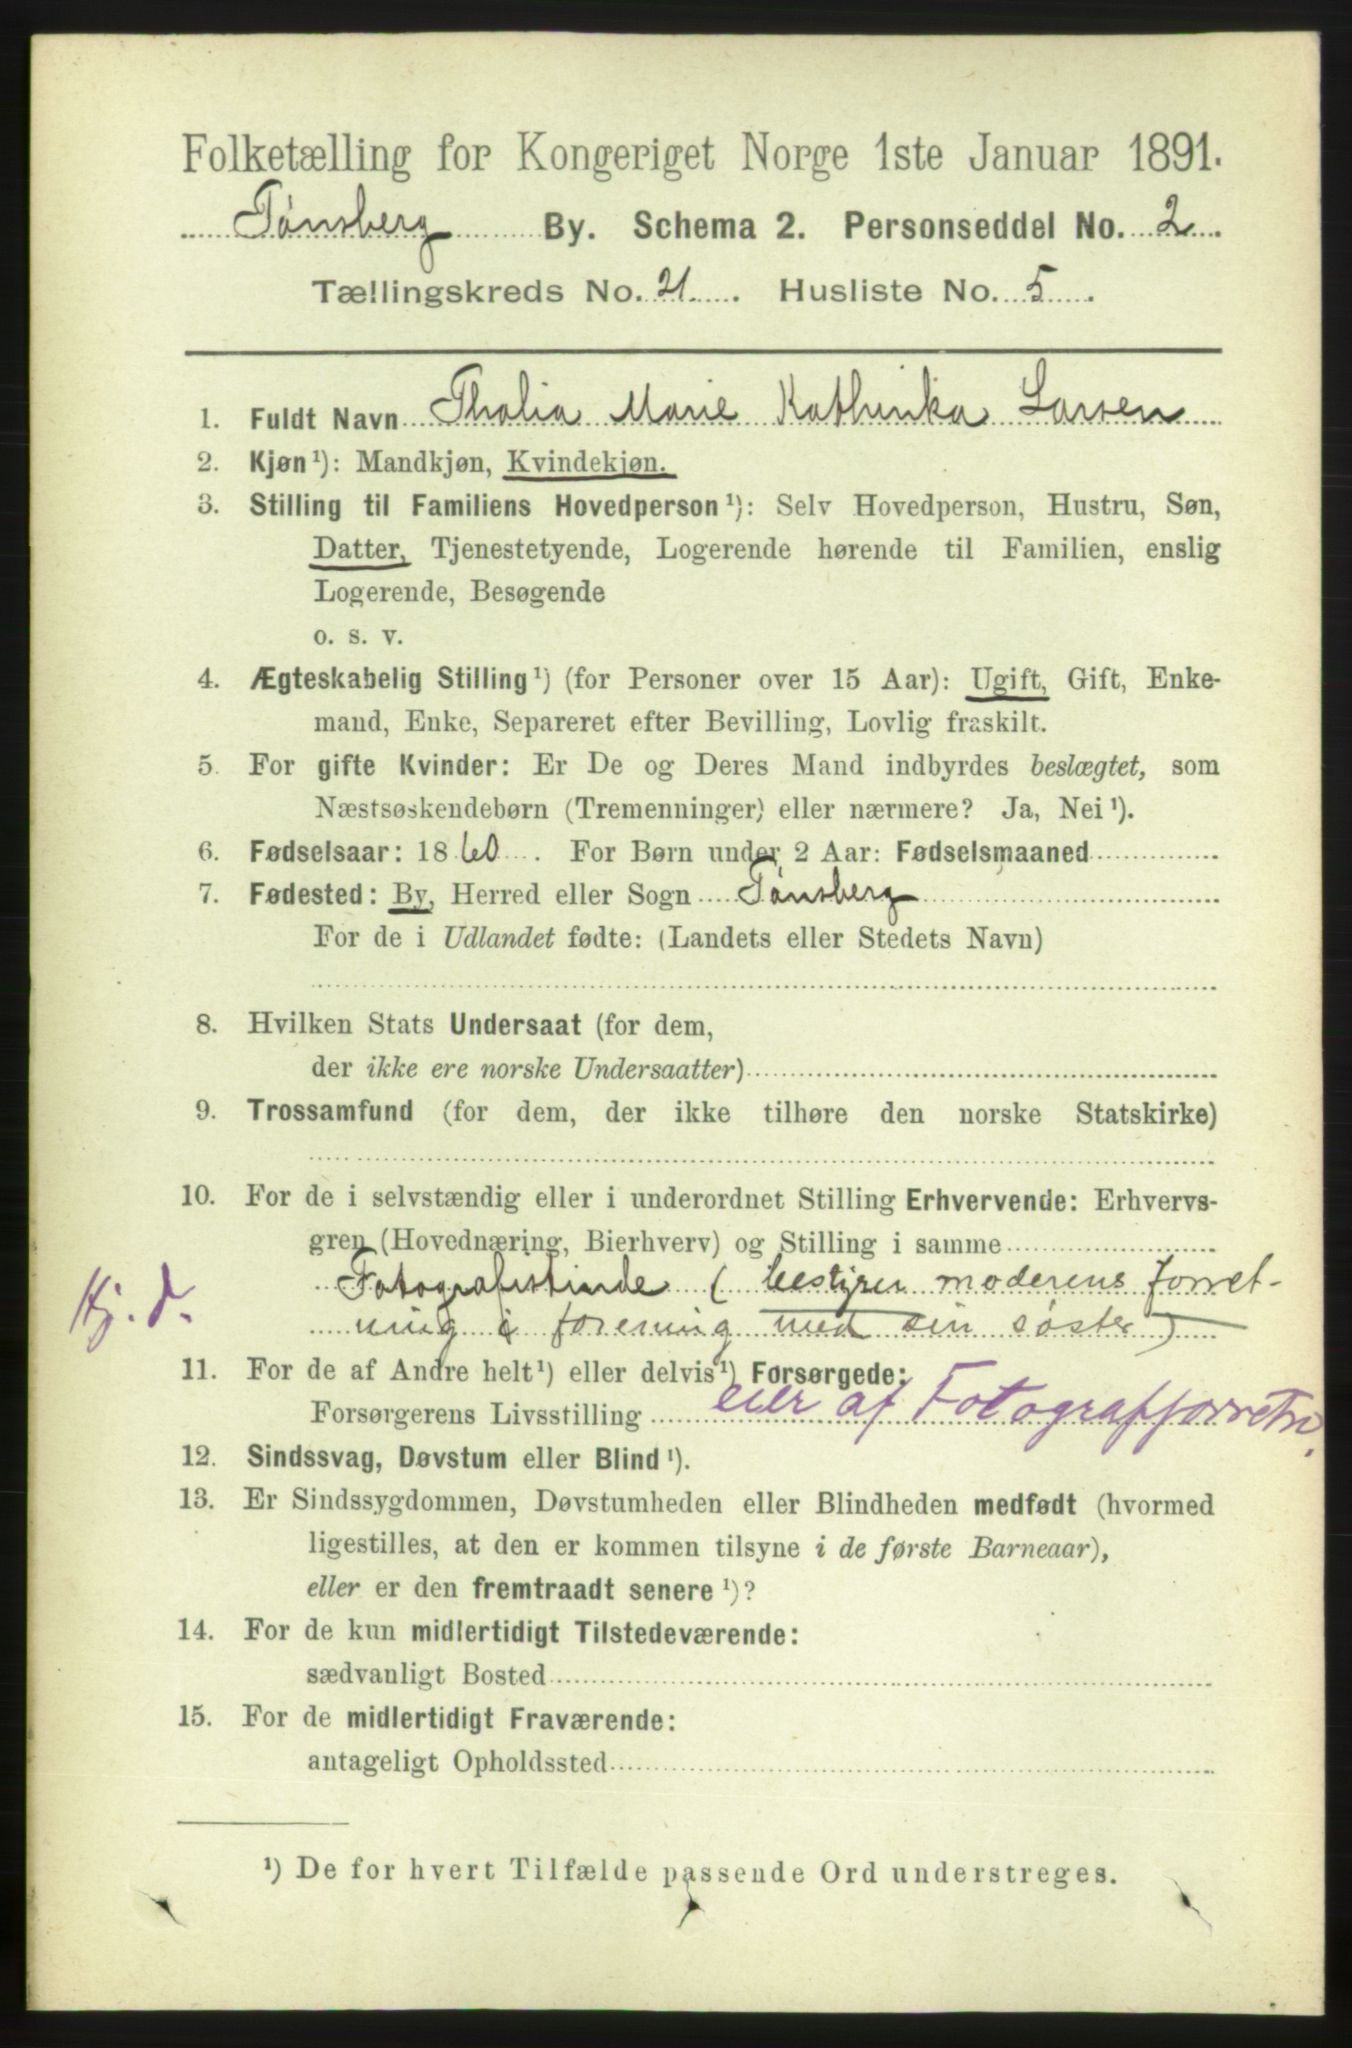 Folketælling for Kongeriget Norge 1ste Januar 1891.
Tønsberg By. Schema 2. Personseddel No. 2
Tællingskreds No. 21. Husliste No. 5.
1. Fuldt Navn Thalia Marie Kathinka Larsen
2. Kjøn¹): Mandkjøn, Kvindekjøn.
3. Stilling til Familiens Hovedperson¹): Selv Hovedperson, Hustru, Søn,
Datter, Tjenestetyende, Logerende hørende til Familien, enslig
Logerende, Besøgende
o. s. v.
4. Ægteskabelig Stilling¹) (for Personer over 15 Aar): Ugift, Gift, Enke-
mand, Enke, Separeret efter Bevilling, Lovlig fraskilt.
5. For gifte Kvinder: Er De og Deres Mand indbyrdes beslægtet, som
Næstsøskendebørn (Tremenninger) eller nærmere? Ja, Nei¹).
6. Fødselsaar: 1860. For Børn under 2 Aar: Fødselsmaaned
7. Fødested: By, Herred eller Sogn Tønsberg
For de i Udlandet fødte: (Landets eller Stedets Navn)
8. Hvilken Stats Undersaat (for dem,
der ikke ere norske Undersaatter)
9. Trossamfund (for dem, der ikke tilhøre den norske Statskirke)
10. For de i selvstændig eller i underordnet Stilling Erhvervende: Erhvervs-
gren (Hovednæring, Bierhverv) og Stilling i samme
Fotografistinde (bestyrer moderens forret-
Hj. d.
ning i forening med sin søster)
11. For de af Andre helt¹) eller delvis¹) Forsørgede:
Forsørgerens Livsstilling eier af Fotografforretn.
12. Sindssvag, Døvstum eller Blind¹).
13. Er Sindssygdommen, Døvstumheden eller Blindheden medfødt (hvormed
ligestilles, at den er kommen tilsyne i de første Barneaar),
eller er den fremtraadt senere¹)?
14. For de kun midlertidigt Tilstedeværende:
sædvanligt Bosted
15. For de midlertidigt Fraværende:
antageligt Opholdssted
¹) De for hvert Tilfælde passende Ord understreges.